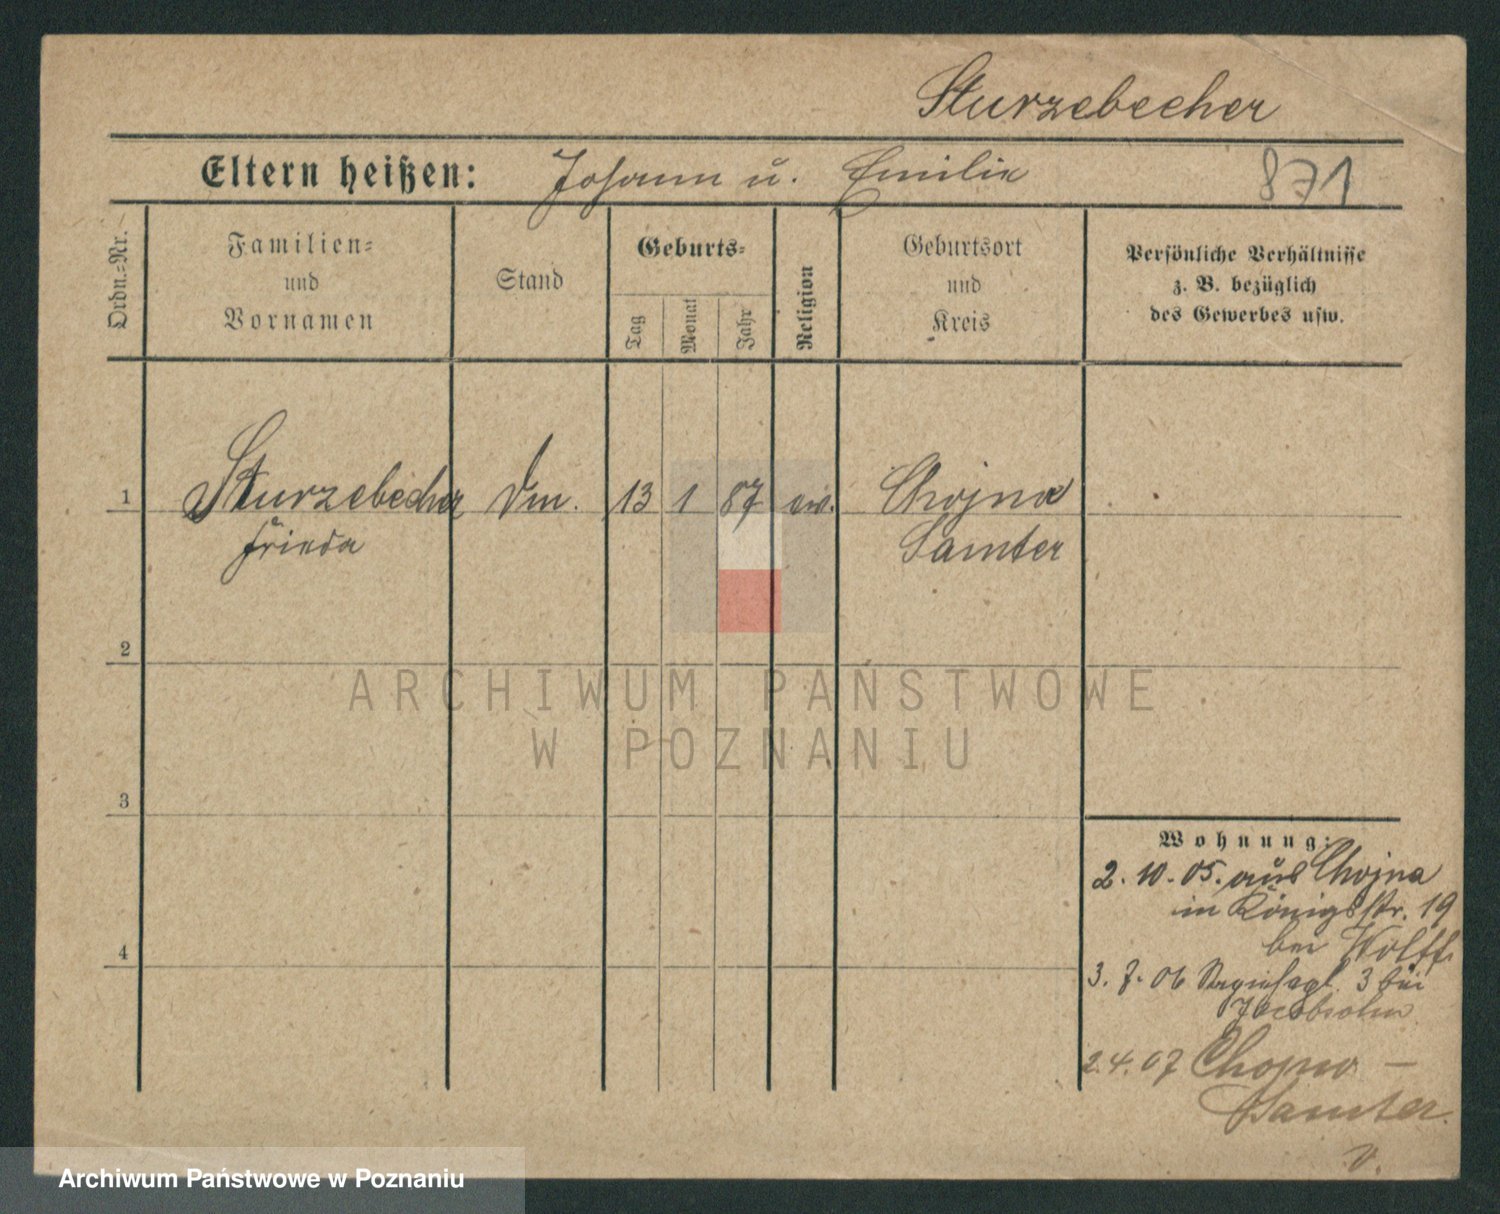 Sturzebecher
Eltern heißen: Johann u. Emilie
871
Ordn.=Nr.
Familien=
und
Vornamen
Stand
Geburts=
Tag
Monat
Jahr
Religion
Geburtsort
und
Kreis
Persönliche Verhältnisse
z. B. bezüglich
des Gewerbes usw.
1 Sturzebecher Dm. 13 1 87 ev. Chojna
Frieda Samter
2
ARCHIWUM PAŃSTWOWE
W POZNANIU
3
Wohnung:
2. 10. 05. aus Chojna
in Königsstr. 19
bei Wolff
4
3. 7. 06 3 bei
Jacobsohn
2.4.07
Samter.
v.
Archiwum Państwowe w Poznaniu